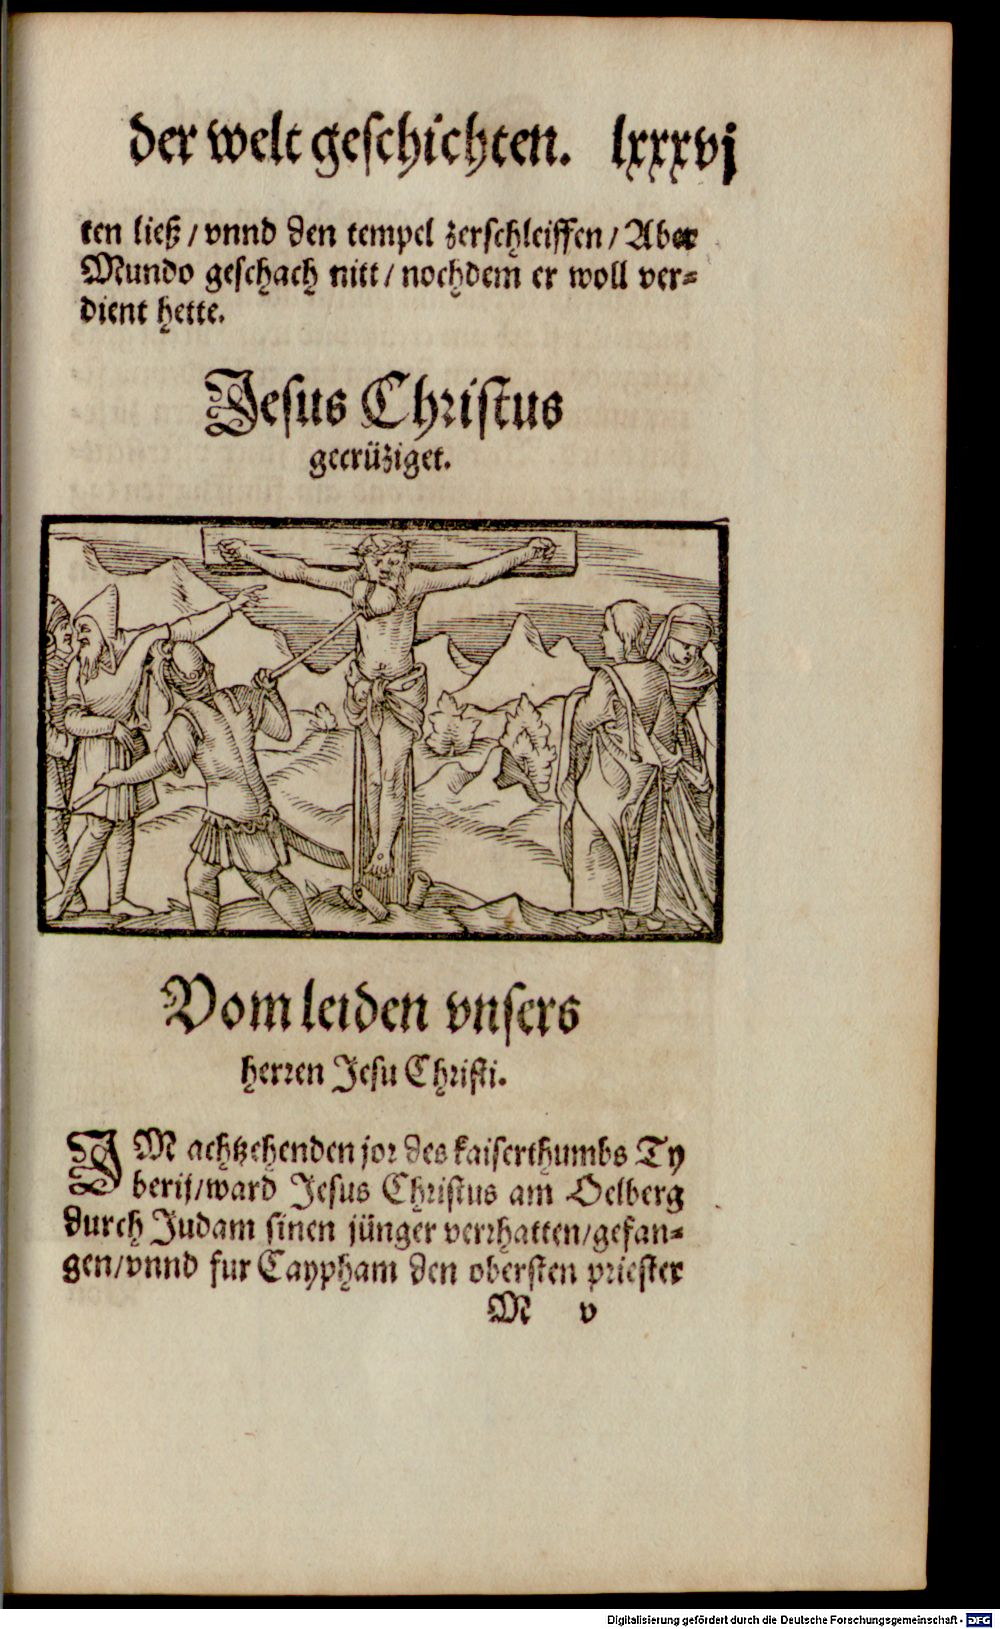 der welt geschichten. lxxxvj
ten ließ / vnnd den tempel zerschleiffen / Aber
Mundo geschach nitt / nochdem er woll ver=
dient hette.
Jesus Christus
gecrüziget.
Vom leiden vnsers
herren Jesu Christi.
IM achtzehenden jor des kaiserthumbs Ty
berij/ward Jesus Christus am Oelberg
durch Judam sinen jünger verrhatten/gefan=
gen/vnnd fur Caypham den obersten priester
M v
Digitalisierung gefördert durch die Deutsche Forschungsgemeinschaft - DFG